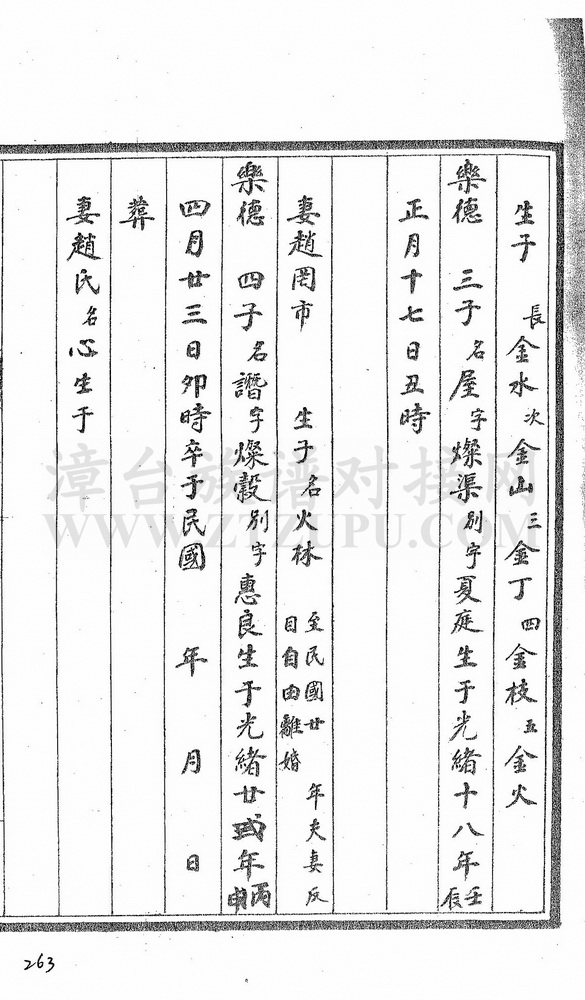 生子 長金水次金山三金丁四金枝五金火
樂德 三子名屋字燦渠別字夏庭生于光緒十八年壬辰
正月十七日丑時
妻趙罔市 生子名火林 至民國廿 年夫妻反
目自由離婚
樂德 四子名譖字燦穀別字惠良生于光緒廿弍年丙申
四月廿三日卯時卒于民國 年 月 日
葬
妻趙氏名心生于
漳台族谱对接网
WWW.ZTZUPU.COM
263